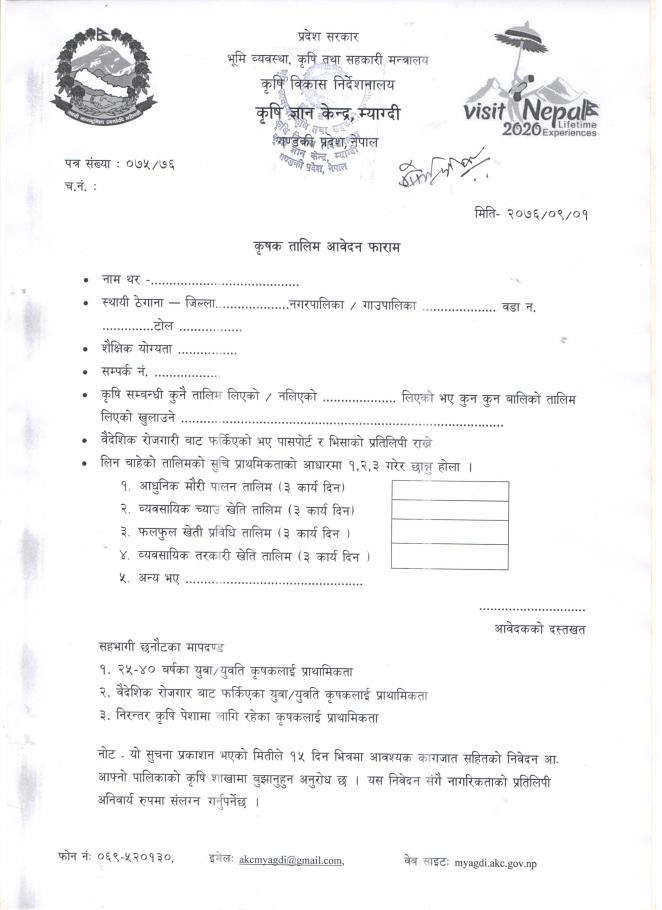 प्रदेश सरकार
भूमि व्यवस्था, कृषि तथा सहकारी मन्त्रालय
कृषि विकास निर्देशनालय
कृषि ज्ञान केन्द्र, म्याग्दी
गण्डकी प्रदेश, नेपाल
visit Nepal
2020 Lifetime Experiences
पत्र संख्या : ०७५/७६
च.नं. :
मिति- २०७६/०९/०१
कृषक तालिम आवेदन फाराम
• नाम थर -.......................................
• स्थायी ठेगाना – जिल्ला...................नगरपालिका / गाउपालिका .................... वडा न.
..............टोल .................
• शैक्षिक योग्यता ................
• सम्पर्क नं. .................
• कृषि सम्बन्धी कुनै तालिम लिएको / नलिएको ................... लिएको भए कुन कुन बालिको तालिम
लिएको खुलाउने .....................................................................................
• वैदेशिक रोजगारी बाट फर्किएको भए पासपोर्ट र भिसाको प्रतिलिपी राख्ने
• लिन चाहेको तालिमको सुचि प्राथमिकताको आधारमा १,२,३ गरेर छान्नु होला ।
१. आधुनिक मौरी पालन तालिम (३ कार्य दिन)
२. व्यवसायिक च्याउ खेति तालिम (३ कार्य दिन)
३. फलफुल खेती प्रविधि तालिम (३ कार्य दिन )
४. व्यवसायिक तरकारी खेति तालिम (३ कार्य दिन )
५. अन्य भए ..............................................
............................
आवेदकको दस्तखत
सहभागी छनौटका मापदण्ड
१. २५-४० बर्षका युवा/युवति कृषकलाई प्राथामिकता
२. वैदेशिक रोजगार बाट फर्किएका युवा/युवति कृषकलाई प्राथामिकता
३. निरन्तर कृषि पेशामा लागि रहेका कृषकलाई प्राथामिकता
नोट - यो सुचना प्रकाशन भएको मितीले १५ दिन भित्रमा आवश्यक कागजात सहितको निवेदन आ-
आफ्नो पालिकाको कृषि शाखामा बुझानुहुन अनुरोध छ । यस निवेदन संगै नागरिकताको प्रतिलिपी
अनिवार्य रुपमा संलग्न गर्नुपर्नेछ ।
फोन नंः ०६९-५२०१३०, इमेलः akcmyagdi@gmail.com, वेब साइटः myagdi.akc.gov.np